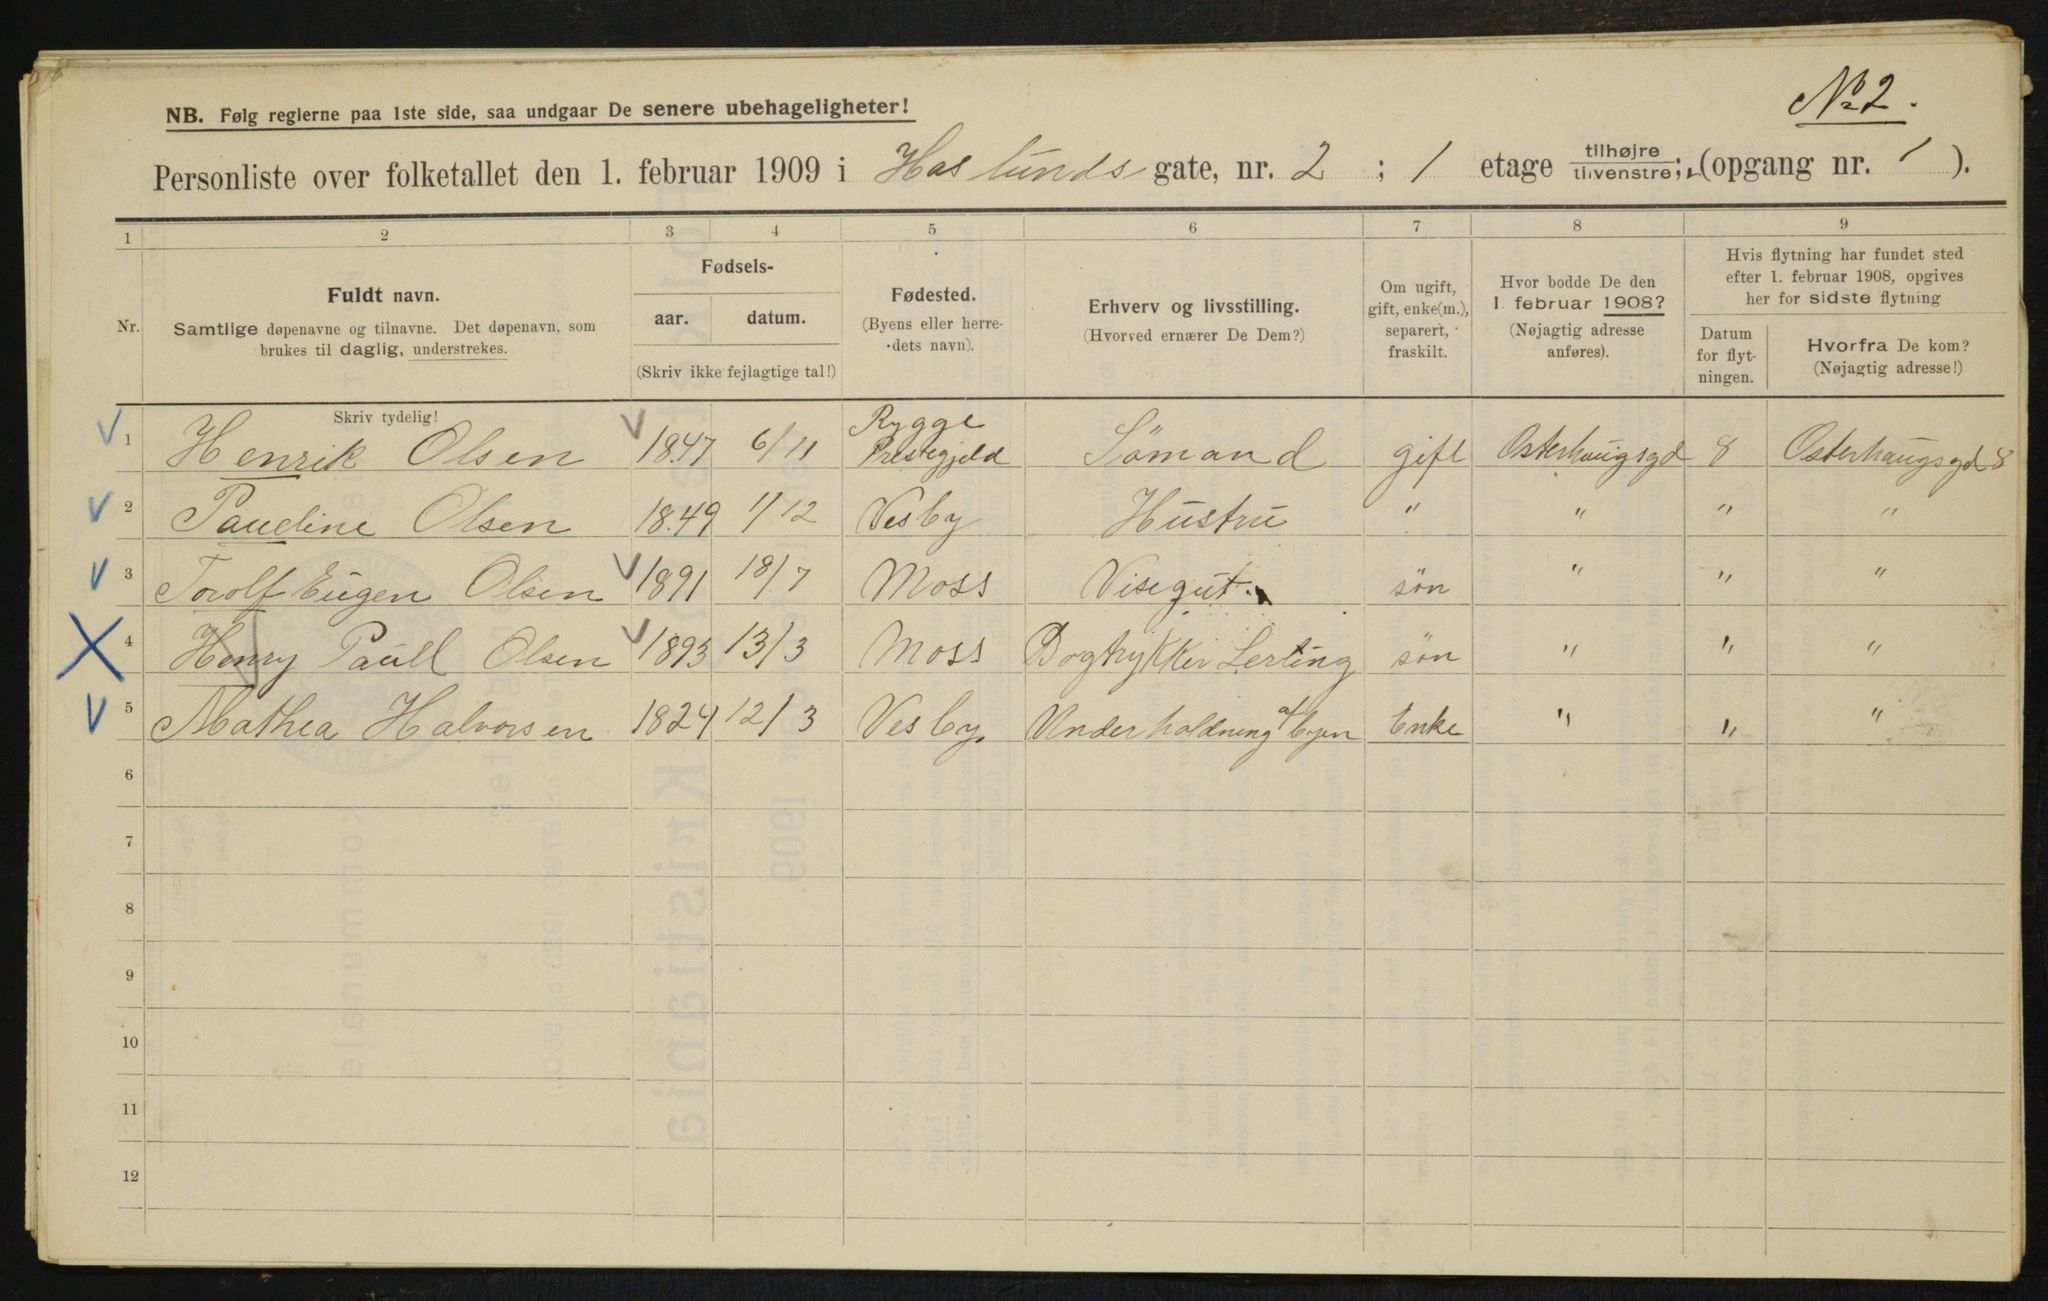 No 2.
NB. Følg reglerne paa 1ste side, saa undgaar De senere ubehageligheter!
Personliste over folketallet den 1. februar 1909 i Haslunds gate, nr. 2 ; 1 etage tilhøjre tilvenstre; (opgang nr. 1 ).
1 2 3 4 5 6 7 8 9
Nr.
Fuldt navn.
Samtlige døpenavne og tilnavne. Det døpenavn, som
brukes til daglig, understrekes.
Fødsels-
aar. datum.
(Skriv ikke fejlagtige tal!)
Fødested.
(Byens eller herre-
dets navn).
Erhverv og livsstilling.
(Hvorved ernærer De Dem?)
Om ugift,
gift, enke(m.),
separert,
fraskilt.
Hvor bodde De den
1. februar 1908?
(Nøjagtig adresse
anføres).
Hvis flytning har fundet sted
efter 1. februar 1908, opgives
her for sidste flytning
Datum
for flyt-
ningen.
Hvorfra De kom?
(Nøjagtig adresse!)
Skriv tydelig!
1 Henrik Olsen 1847 6/11 Rygge Prestegjeld Sömand gift Osterhaugsgd 8 Osterhaugsgd 8
2 Paudine Olsen 18.49 1/12 Vesby Hustru " " " "
3 Torolf Eugen Olsen 1891 18/7 Moss Visegut. sön " " "
4 Henry Paull Olsen 1893 13/3 Moss Bogtrykker Lerling sön " " "
5 Mathea Halvorsen 1824 12/3 Vesby. Underholdning af byen Enke " " "
6
7
8
9
10
11
12